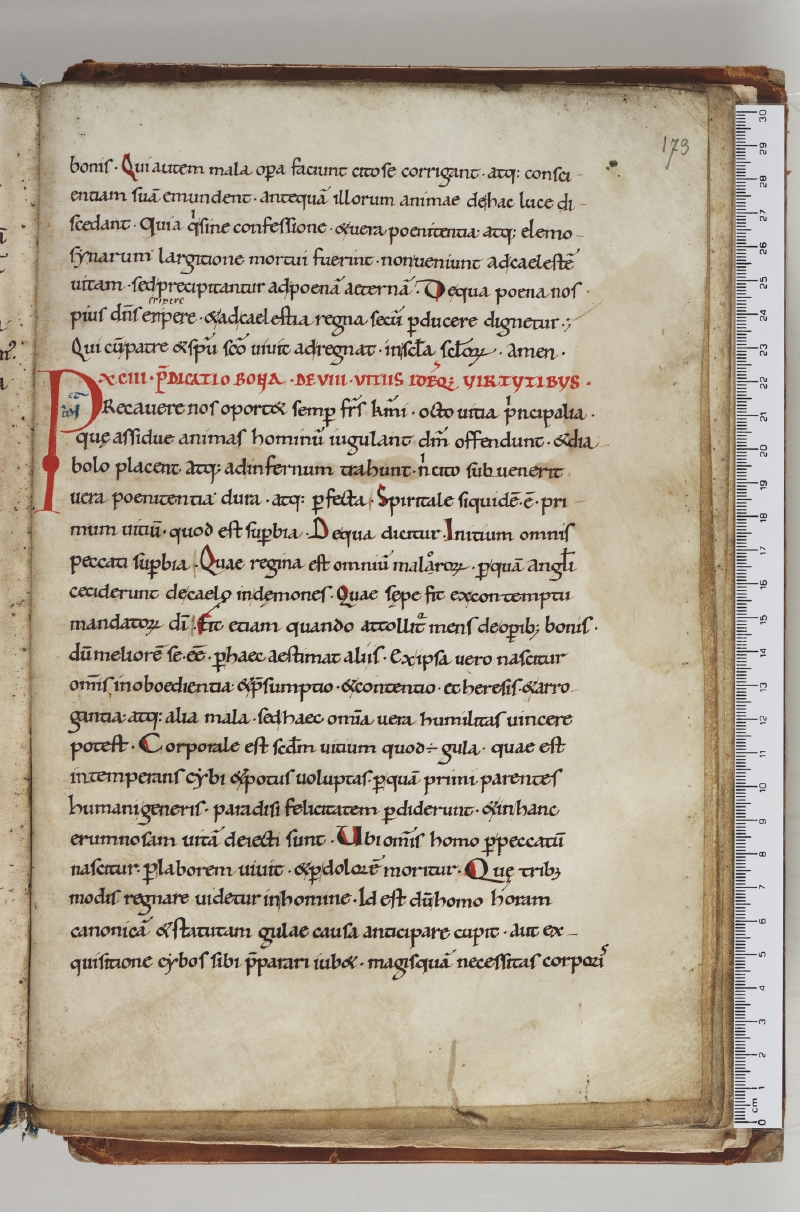 173
bonis · Qui autem mala oꝑa faciunt cito se corrigant · atq: consci-
entiam suā emundent · antequā illorum animae dehac luce di-
scedant · Quia q̍ sine confessione · &uera poenitentia atq; elemo-
synarum largitione mortui fuerint · non ueniunt adcaelestē
uitam · sed precipitantur adpoenā aeternā · Dequa poena nos ·
eripire
pius dn̄s eripere · &adcaelestia regna secū ꝑducere dignetur ·;
Qui cū patre &sp̄u sc̄o uiuit ad regnat · in sc̄la sc̄loꝝ · amen ·
XCIII · P̄DICATIO BONA · DE VIII · VITIIS IDEQ; VIRTVTIBVS ·
PRecauere nos oport& semꝑ fr̄s kmi · octo uitia p̍ncipalia ·
quę assidue animas hominū iugulant dm̄ offendunt · &dia-
bolo placent atq; adinfernum trahunt · n̍ cito subuenerit
uera poenitentia dura · atq: ꝑfecta · Spiritale siquidē · ē · pri-
mum uitiū · quod est suꝑbia · Dequa dicitur · Initium omnis
peccati suꝑbia · Quae regina est omniū maloꝝ · ꝑquā angl̄i
ceciderunt decaelo in demones · Quae sępe fit excontemptu
mandatoꝝ dī · Fit etiam quando attollit mens deoꝑib; bonis ·
dū meliorē se · ēē · ꝑhaec aestimat aliis · Exipsa uero nascitur
om̄is inoboedientia · &p̄sumptio · &contentio · et heresis · &arro-
gantia · atq: alia mala · sed haec om̄ia uera humilitas uincere
potest · Corporale est scdm̄ uitium quod ÷ gula · quae est
intemperans cybi &potus uoluptas · ꝑquā primi parentes
humani generis · paradisi felicitatem ꝑdiderunt · &inhanc
erumnosam uitā deiecti sunt · Ubi om̄is homo ꝑpeccatū
nascitur · ꝑlaborem uiuit · &ꝑdolorē moritur · Quę tribꝫ
modis regnare uidetur inhomine · Id est dū homo horam
canonicā &statutam gulae causa anticipare cupit · aut ex-
quisitione cybos sibi p̄parari iub& · magisquā necessitas corporis